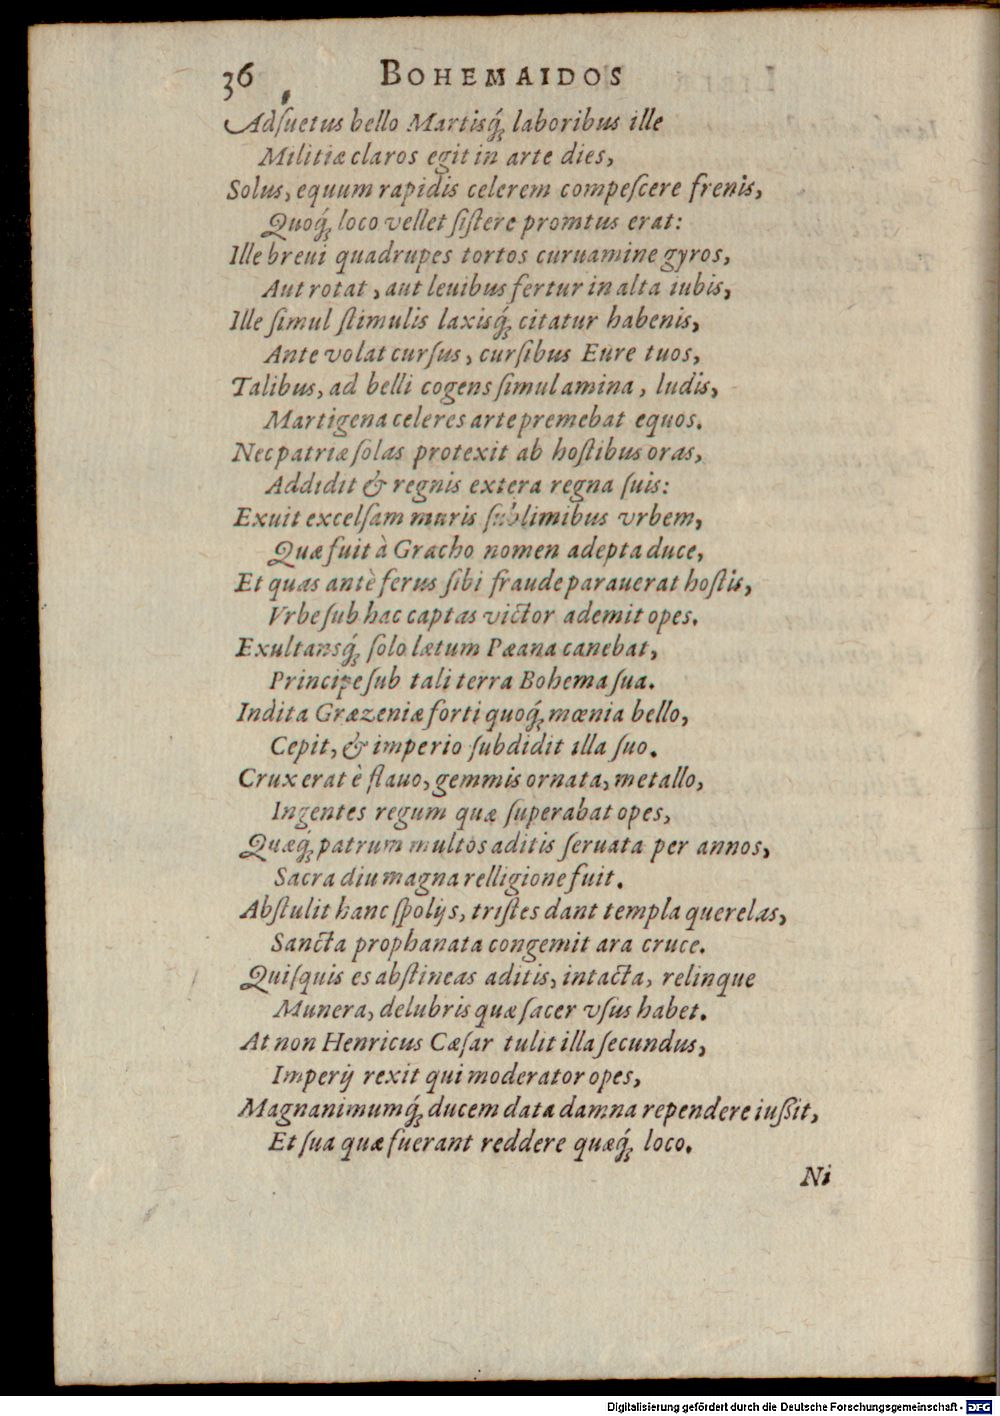 36 BOHEMAIDOS
Adſuetus bello Martisq́ꝫ laboribus ille
Militiæ claros egit in arte dies,
Solus, equum rapidis celerem compeſcere frenis,
Quoq́ꝫ loco vellet ſiſtere promtus erat:
Ille breui quadrupes tortos curuamine gyros,
Aut rotat, aut leuibus fertur in alta iubis,
Ille ſimul ſtimulis laxisq́ꝫ citatur habenis,
Ante volat curſus, curſibus Eure tuos,
Talibus, ad belli cogens ſimulamina, ludis,
Martigena celeres arte premebat equos.
Nec patriæ ſolas protexit ab hoſtibus oras,
Addidit & regnis extera regna ſuis:
Exuit excelſam muris ſublimibus vrbem,
Quæ fuit à Gracho nomen adepta duce,
Et quas antè ferus ſibi fraude parauerat hoſtis,
Vrbe ſub hac captas victor ademit opes.
Exultansq́ꝫ ſolo lætum Pæana canebat,
Principe ſub tali terra Bohema ſua.
Indita Græzeniæ forti quoq́ꝫ mœnia bello,
Cepit, & imperio ſubdidit illa ſuo.
Crux erat è flauo, gemmis ornata, metallo,
Ingentes regum quæ ſuperabat opes,
Quæq́ꝫ patrum multos aditis ſeruata per annos,
Sacra diu magna relligione fuit.
Abſtulit hanc ſpolijs, triſtes dant templa querelas,
Sancta prophanata congemit ara cruce.
Quiſquis es abſtineas aditis, intacta, relinque
Munera, delubris quæ ſacer vſus habet.
At non Henricus Cæſar tulit illa ſecundus,
Imperij rexit qui moderator opes,
Magnanimumq́ꝫ ducem data damna rependere iuſsit,
Et ſua quæ fuerant reddere quæq́ꝫ loco.
Ni
Digitalisierung gefördert durch die Deutsche Forschungsgemeinschaft - DFG